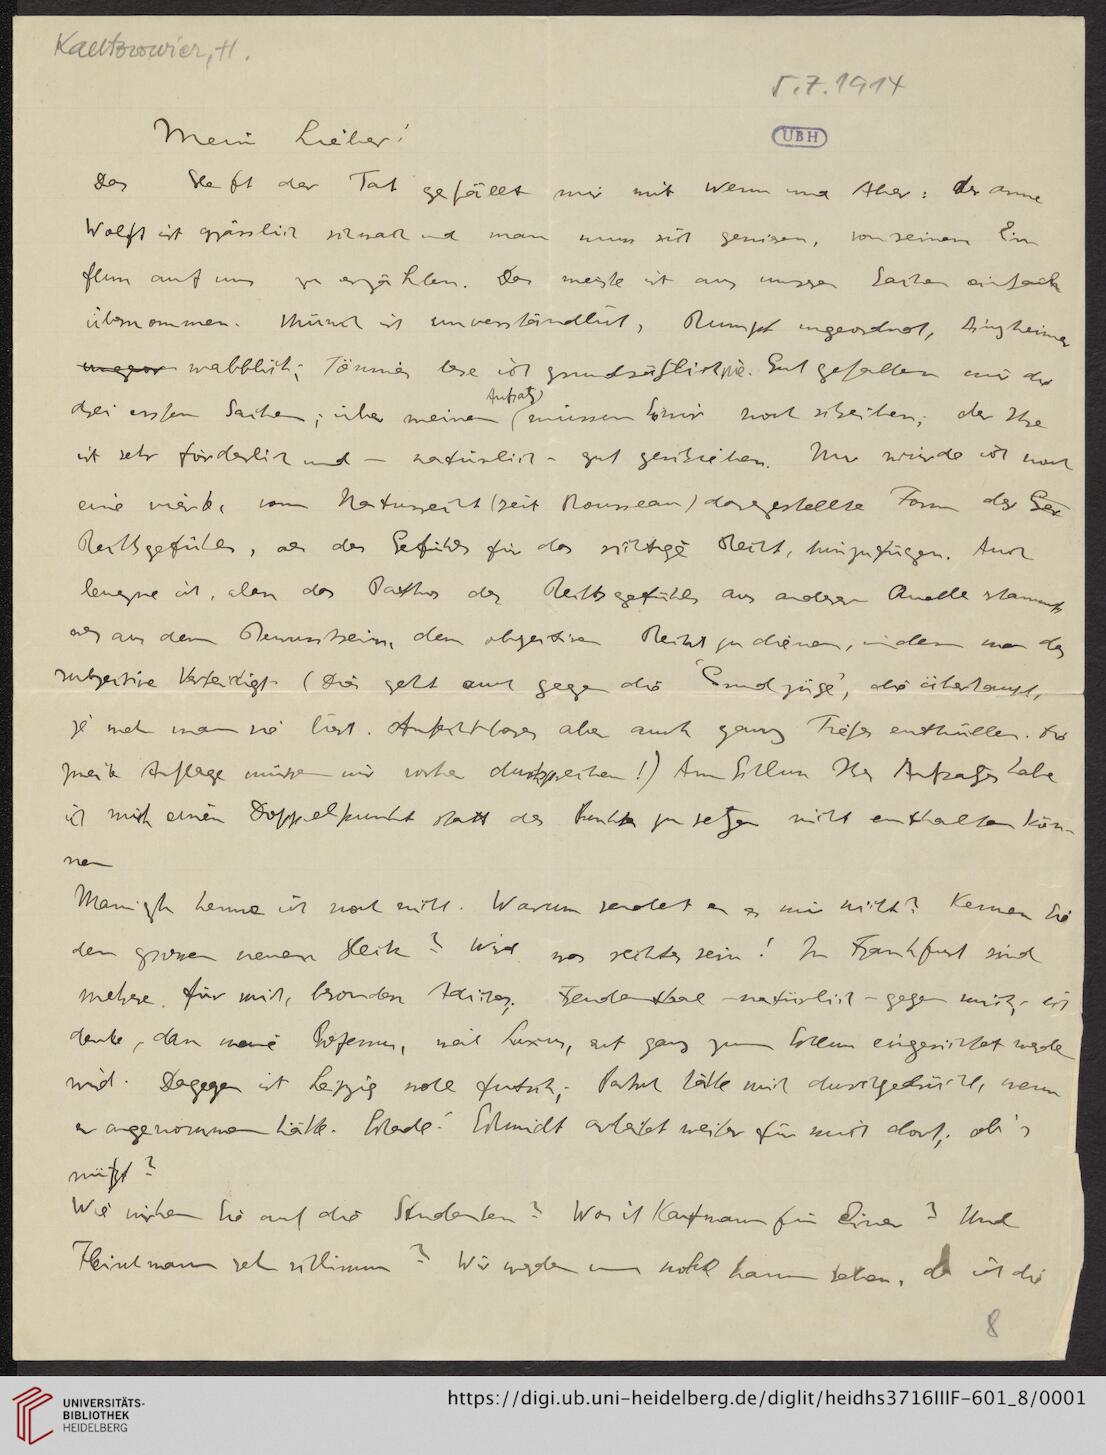 Kantorowicz, H.
5.7.1914
UBH
Mein Lieber!
Das Heft der Tat gefällt mir mit Wenn und Aber: der arme
Wolff ist grässlich schwach und man muss sich genieren, von seinem Ein
fluss auf uns zu erzählen. Das meiste ist aus unsren Sachen einfach
übernommen. ist unverständlich, Rumpf ungeordnet, Sinzheimer
wabblich; Tönnies lese ich grundsätzlich nie. Gut gefallen mir die
drei ersten Sachen; über meinen Aufsatz müssen Sie mir noch schreiben; der Ihre
ist sehr förderlich und – natürlich – gut geschrieben. Nur würde ich noch
eine vierte, vom Naturrecht (seit Rousseau) dargestellte Form des
Rechtsgefühls, als des Gefühls für das richtige Recht, hinzufügen. Auch
leugne ich, dass das Pathos des Rechtsgefühls aus anderer Quelle stammt
als aus dem Bewusstsein, dem objectiven Recht zu dienen, indem man das
subjective verteidigt. (Dies geht auch gegen die "Grundzüge", die überhaupt,
je mehr man sie liest, aber auch ganz Tiefes enthüllen. Die
zweite Auflage müssen wir vorher durchsprechen!) Am Schluss Ihres Aufsatzes habe
ich mich einen Doppelpunkt statt des Punktes zu setzen nicht enthalten kön-
nen
kenne ich noch nicht. Warum sendet er es mir nicht? Kennen Sie
den grossen neuen Heck? Wird was rechtes sein! In Frankfurt sind
mehrere für mich, besonders Freudenthal – natürlich – gegen mich; ich
denke, dass meine Professur, weil Luxus, erst ganz zum Schluss eingerichtet werden
wird. Dagegen ist Leipzig wohl futsch; hätte mich durchgedrückt, wenn
er angenommen hätte. Schade! Schmidt arbeitet weiter für mich dort; ob's
nützt?
Wie wirken Sie auf die Studenten? Was ist Kaufmann für Einer? Und
sehr schlimm? Wir werden uns wohl kaum sehen, da ich die
8
UNIVERSITÄTS-
BIBLIOTHEK
HEIDELBERG
https://digi.ub.uni-heidelberg.de/diglit/heidhs3716IIIF-601_8/0001